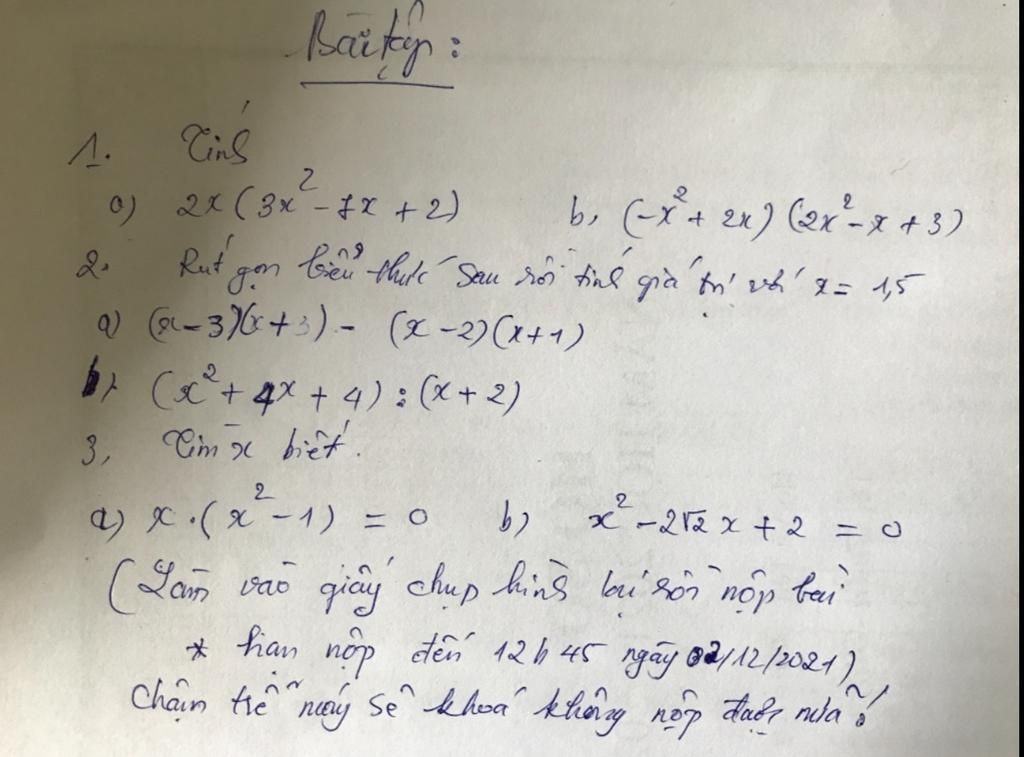 Bài tập:
1. Tính
a) 2x(3x² - 7x + 2) b, (-x² + 2x)(2x² - x + 3)
2. Rút gọn biểu thức sau rồi tính giá trị với x = 1,5
a) (x-3)(x+3) - (x-2)(x+1)
b) (x² + 4x + 4) : (x+2)
3, Tìm x biết.
a) x.(x² - 1) = 0 b) x² - 2√2 x + 2 = 0
(Làm vào giấy chụp hình lại rồi nộp bài
* hạn nộp đến 12h45 ngày 02/12/2021)
Chậm trễ máy sẽ khoá không nộp được nữa!